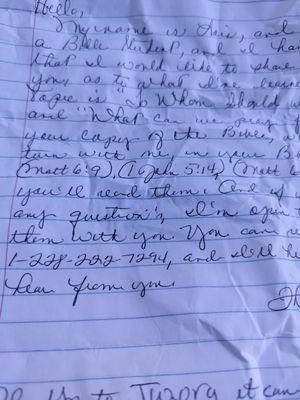 Hello,
My name is Iris, and
a Bible Student, and I ha
that I would like to share
you, as to what I've learne
Topic is "To Whom Should w
and "What can we pray f
your copy of the Bible, a
turn with me in your B
(Matt 6:9), (1 John 5:14), (Matt 6
you'll read them. And if
any question's, I'm open t
them with you. You can re
1-228-222-7294, and I'll he
hear from you.
Th
to Tuzora it can